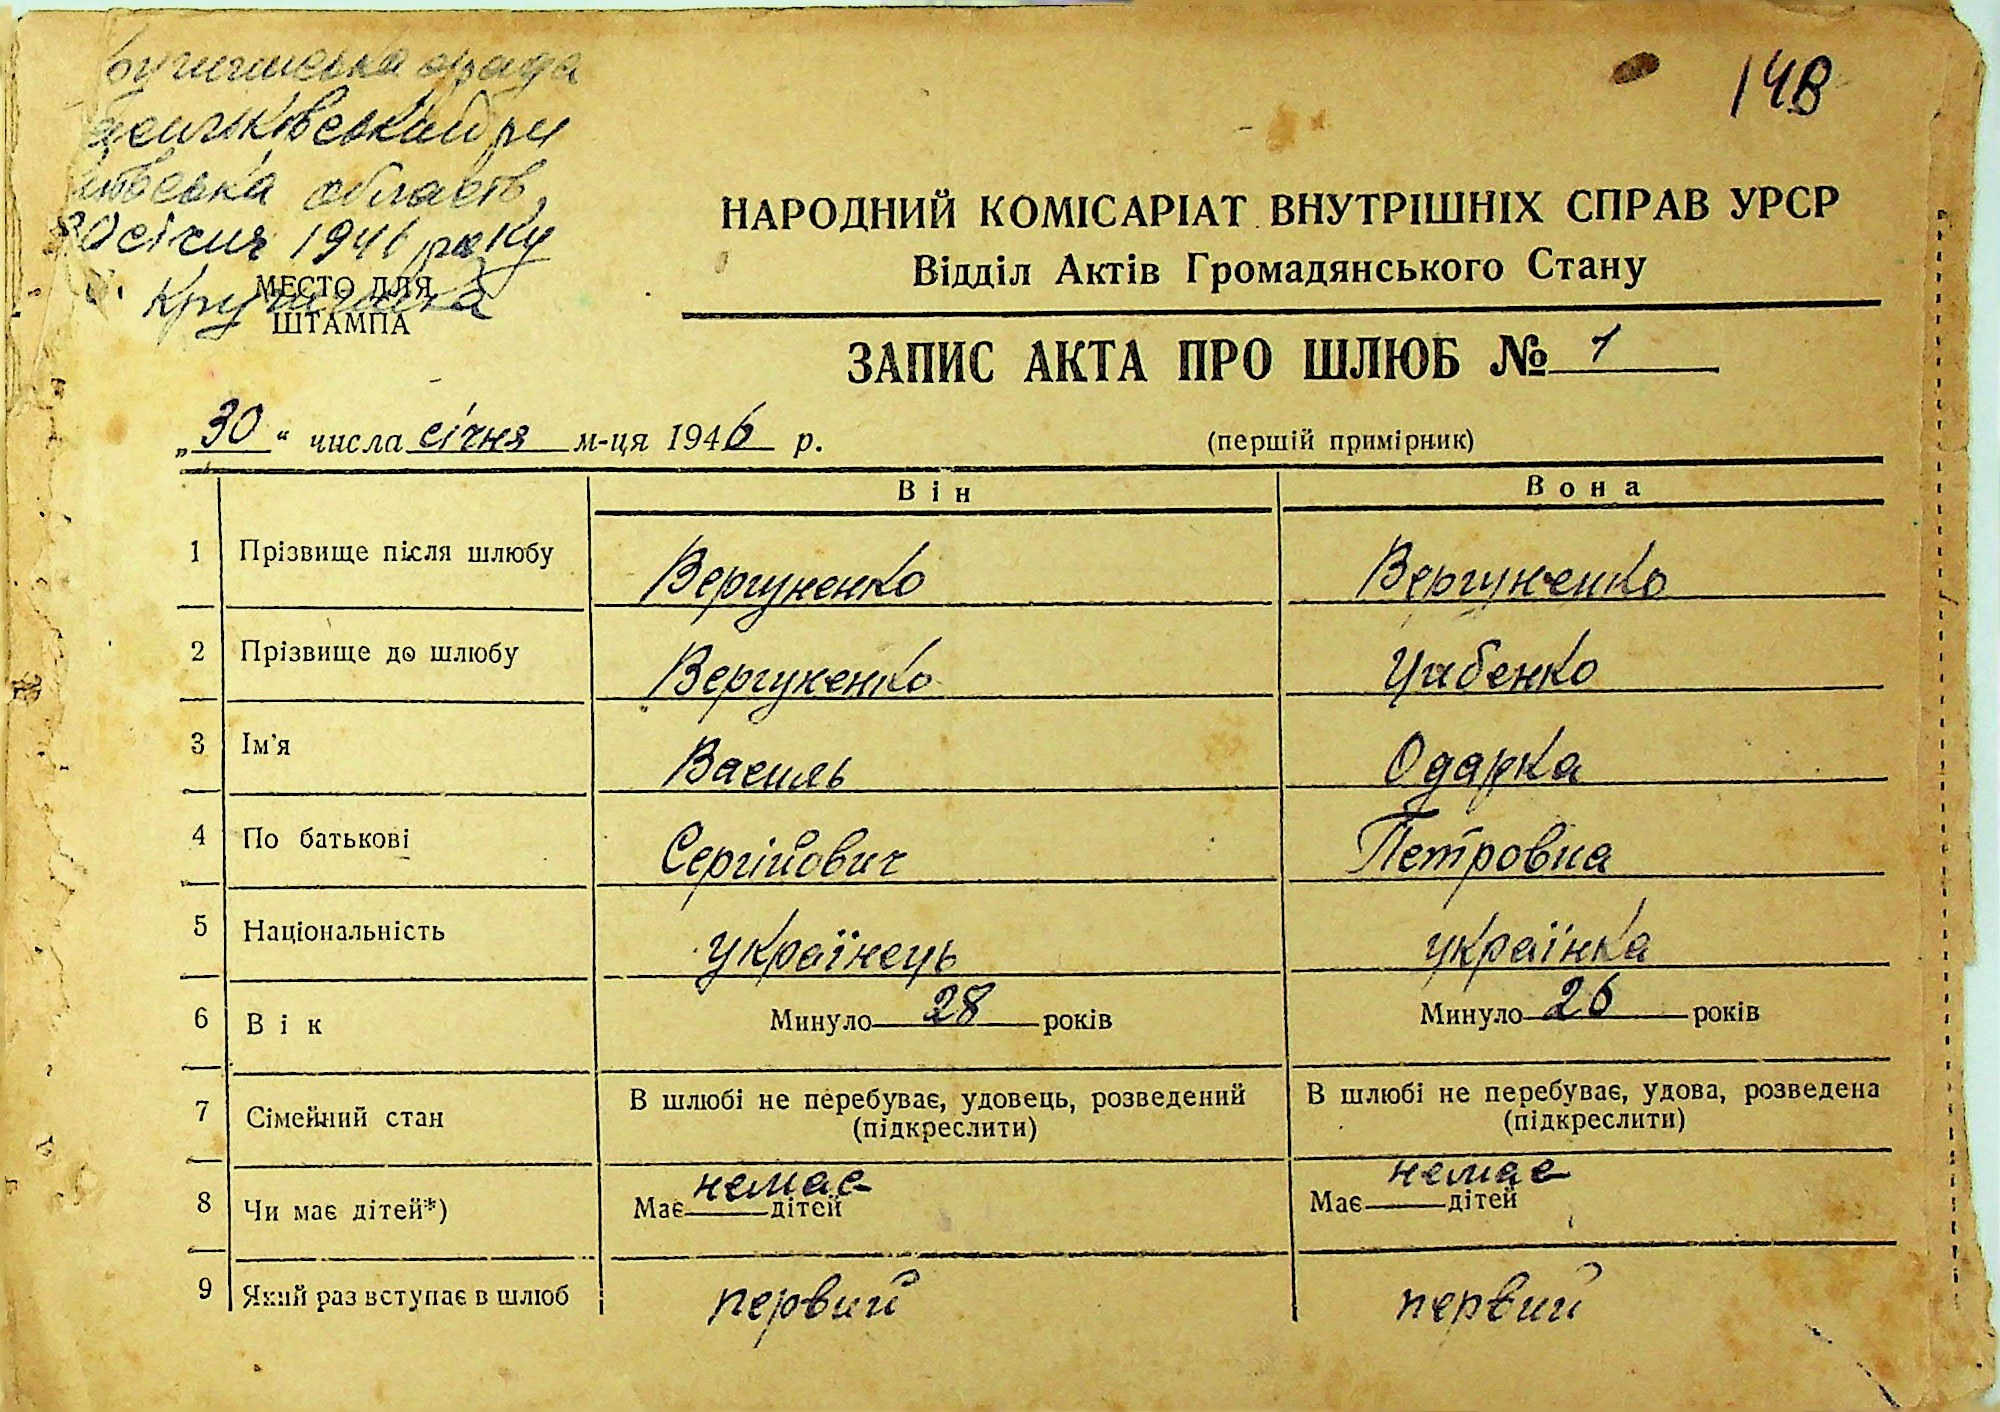 рада
область
30 січня 1946 року
МЕСТО ДЛЯ
ШТАМПА
148
НАРОДНИЙ КОМІСАРІАТ ВНУТРІШНІХ СПРАВ УРСР
Відділ Актів Громадянського Стану
ЗАПИС АКТА ПРО ШЛЮБ № 1
„30“ числа січня м-ця 1946 р.
(першій примірник)
Він Вона
1 Прізвище після шлюбу Вергуненко Вергуненко
2 Прізвище до шлюбу Вергуненко Цибенко
3 Ім'я Василь Одарка
4 По батькові Сергійович Петровна
5 Національність українець українка
6 Вік Минуло 28 років Минуло 26 років
7 Сімейний стан В шлюбі не перебуває, удовець, розведений (підкреслити) В шлюбі не перебуває, удова, розведена (підкреслити)
8 Чи має дітей*) Має немає дітей Має немає дітей
9 Який раз вступає в шлюб первий первий